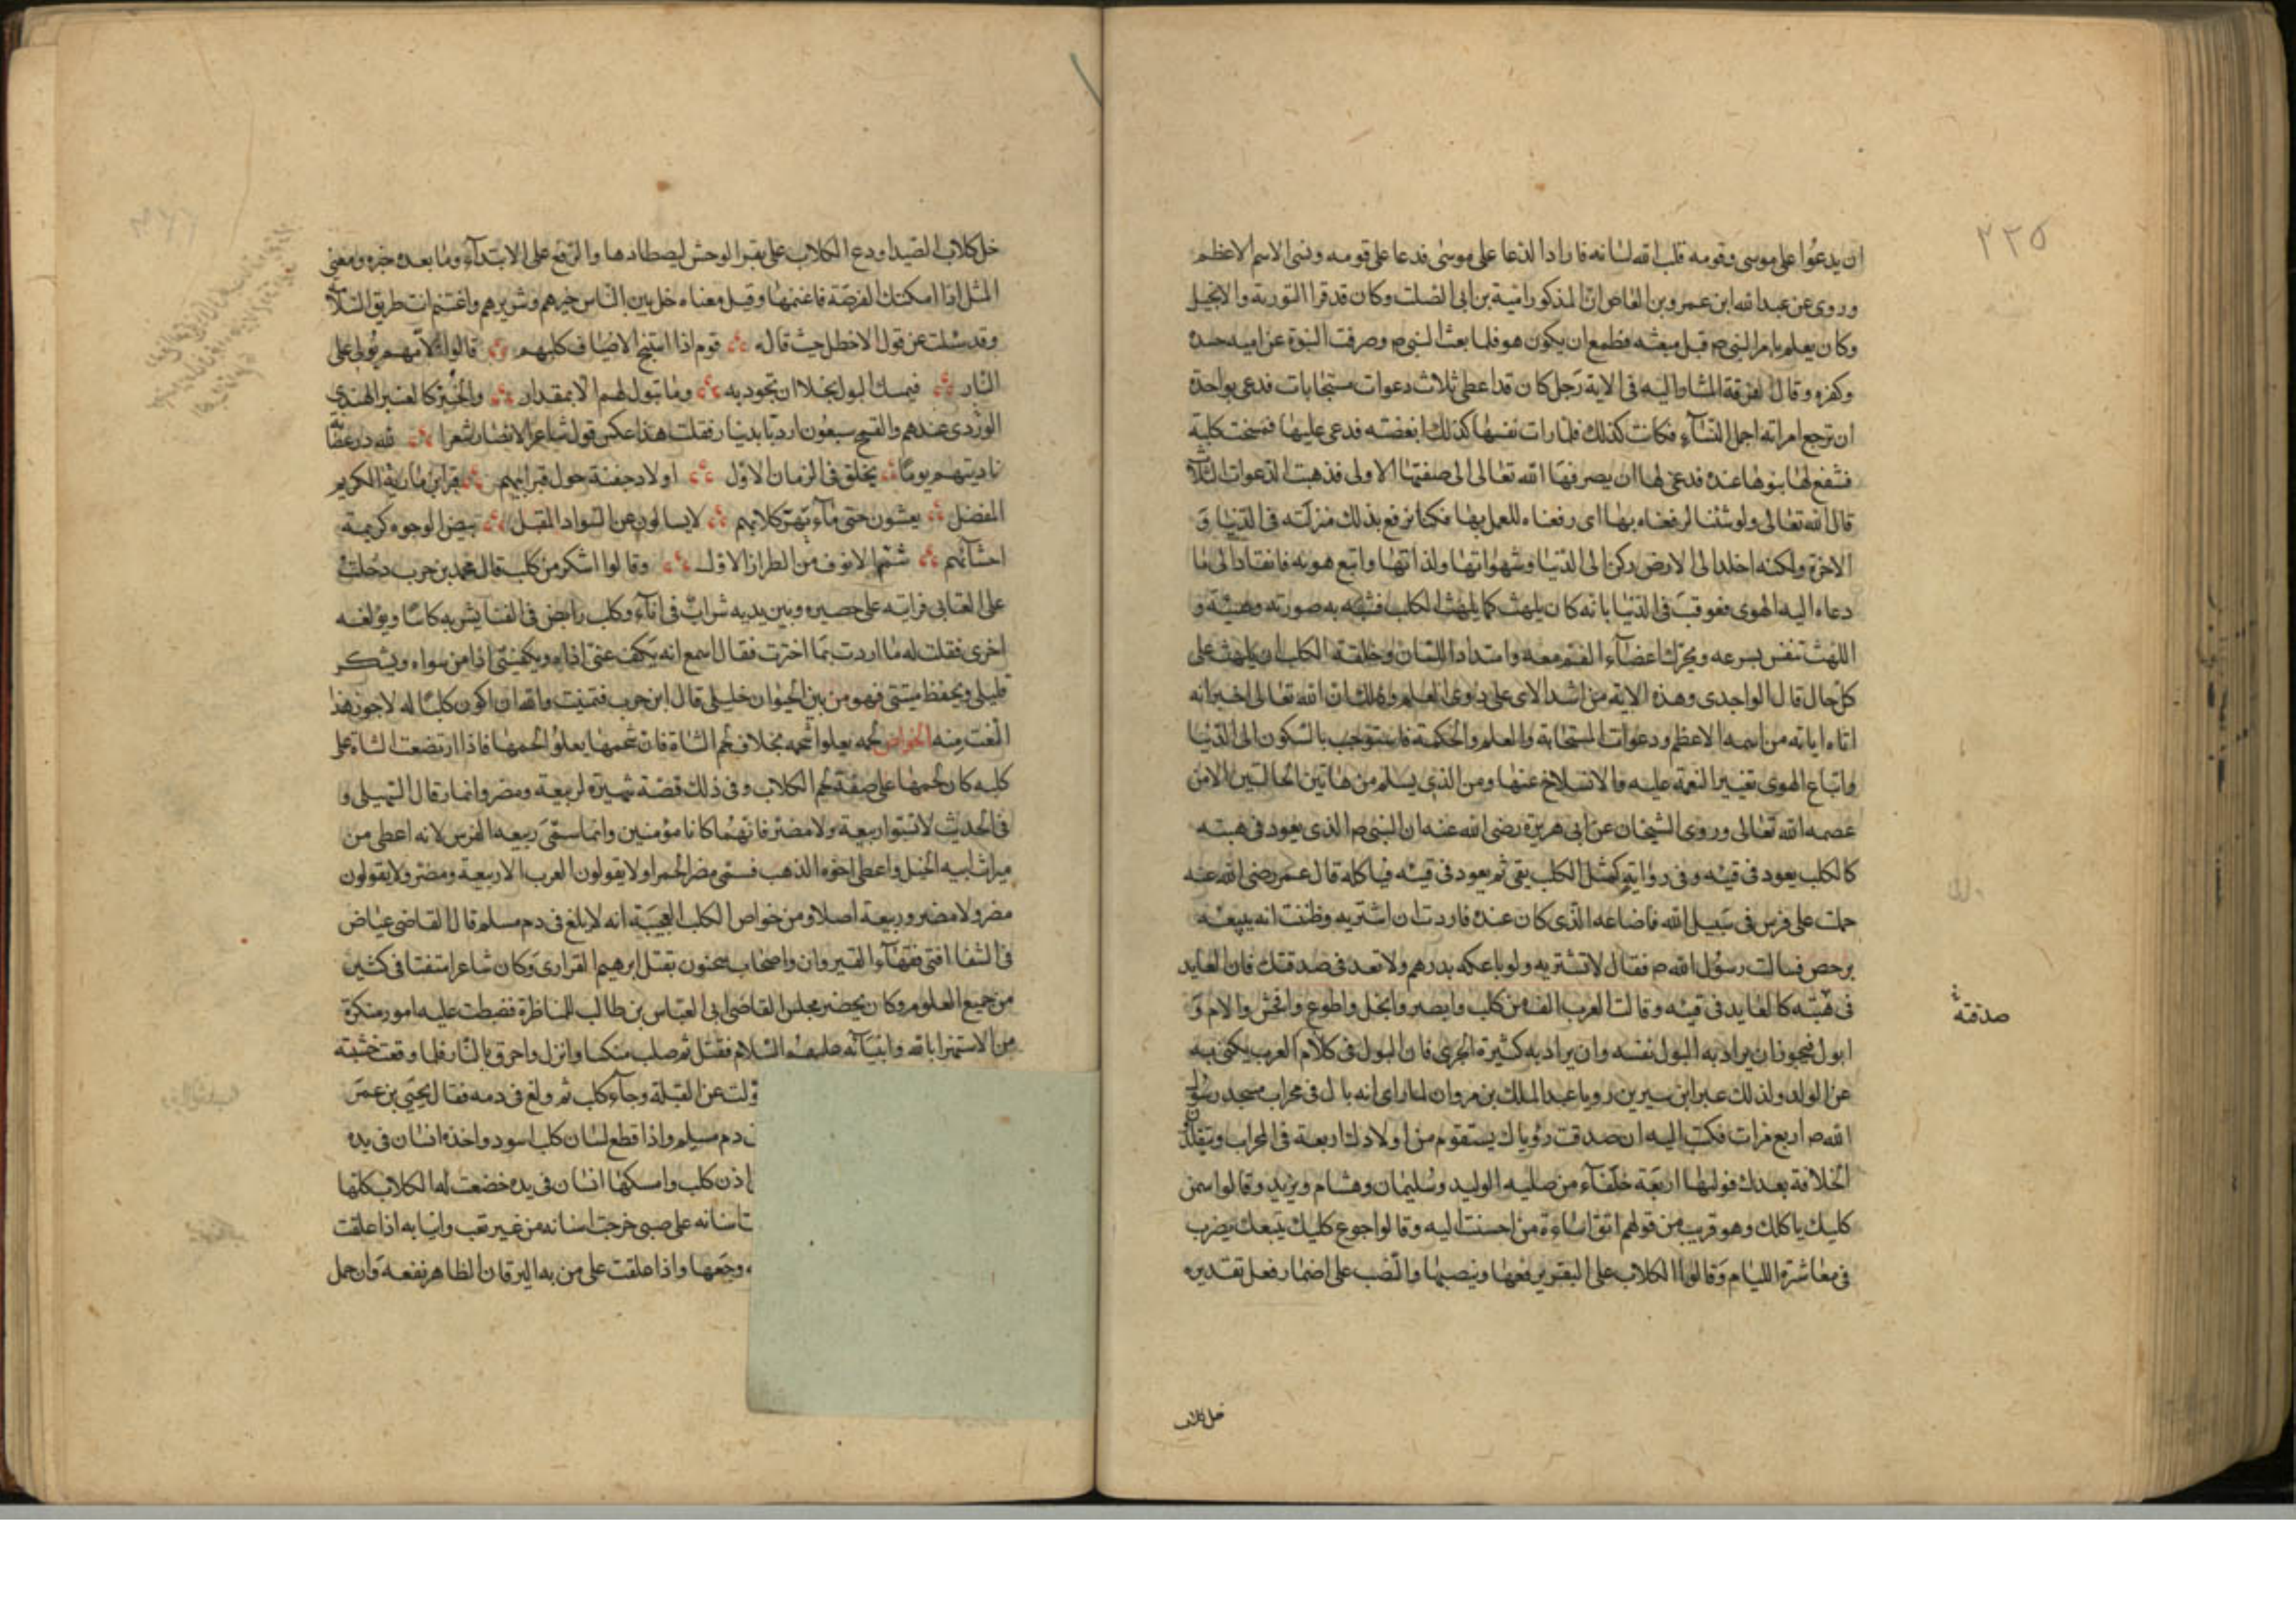 ٢٢٥
ان يدعوا على موسى وقومه قلب الله لسانه فاراد الدعا على موسى فدعا على قومه ونسى الاسم الاعظم
وروى عن عبدالله ابن عمرو بن العاص ان المذكور امية بن ابى الصلت وكان قد قرا التورية والانجيل
وكان يعلم بامر النبى ص قبل مبعثه فطمع ان يكون هو فلما بعث النبى ص وصرفت النبوة عن اميه حسده
وكفره وقال لفرقة المشار اليه فى الاية رجل كان قد اعطى ثلاث دعوات مستجابات فدعى بواحدة
ان ترجع امراته اجمل النسآء فكانت كذلك فلما رات نفسها كذلك ابغضته فدعى عليها فمسخت كلبة
فشفع لها بنوها عنده فدعى لها ان يصرفها الله تعالى الى صفتها الاولى فذهبت الدعوات الثلاث
قال الله تعالى ولو شئنا لرفعناه بها اى رفعناه للعمل بها فكنا نرفع بذلك منزلته فى الدنيا و
الاخرة ولكنه اخلد الى الارض ركن الى الدنيا وشهواتها ولذاتها واتبع هويه فانقاد الى ما
دعاه اليه الهوى فعوقب فى الدنيا بانه كان يلهث كما يلهث الكلب فشبه به صورته وهيئة و
اللهث تنفس بسرعه وتحرك اعضآء الفم معه وامتداد اللسان وخلقة الكلب ان يلهث على
كل حال قال الواحدى وهذه الاية من اشد الاى على ذوى العلم وذلك ان الله تعالى اخبر انه
اتاه اياته من اسمه الاعظم ودعوات المستجابة والعلم والحكمة فاستوجب بالسكون الى الدنيا
واتباع الهوى تغيير النعمة عليه والانسلاخ عنها ومن الذى يسلم من هاتين الحالتين الا من
عصمه الله تعالى وروى الشيخان عن ابى هريرة رضى الله عنه ان النبى ص الذى يعود فى هبته
كالكلب يعود فى قيئه وفى رواية كمثل الكلب يقى ثم يعود فى قيئه فياكله قال عمر رضى الله عنه
حملت على فرس فى سبيل الله فاضاعه الذى كان عنده فاردت ان اشتريه وظننت انه يبيعه
برخص فسالت رسول الله ص فقال لا تشتريه ولو باعكه بدرهم ولا تعد فى صدقتك فان العايد
فى هبته كالعايد فى قيئه وقالت العرب الف من كلب وابصر وابخل واطوع وافحش والام و
صدقته
ابول فيجوز ان يراد به البول نفسه وان يراد به كثيرة الجرى فان البول فى كلام العرب يكنى به
عن الولد ولذلك عبر ابن سيرين رويا عبد الملك بن مروان لما راى انه بال فى محراب مسجد رسول
الله ص اربع مرات فكتب اليه ان صدقت رؤياك يستقوم من اولادك اربعة فى المحراب ويتقلد
الخلافة بعدك فوليها اربعة خلفآء من صلبه الوليد وسليمان وهشام ويزيد وقالوا سمن
كلبك ياكلك وهو قريب من قولهم اتق اساءة من احسنت اليه وقالوا جوع كلبك يتبعك يضرب
فى معاشرة الليام وقالوا الكلاب على البقر برفعها ونصبها والنصب على اضمار فعل تقديره
خل كلاب
خل كلاب الصيد او دع الكلاب على بقر الوحش ليصطادها والرفع على الابتدآء وما بعده خبره ومعنى
المثل اذا امكنتك الفرصة فاغنمها وقيل معناه خل بين الناس خيرهم وشريرهم واغتنم انت طريق السلامة
وقد سئلت عن قول الاخطل حيث قال قوم اذا استنبح الاضياف كلبهم قالوا لامهم بولى على
النار فيمسك البول بخلا ان تجود به وما تبول لهم الا بمقدار والخبز كالعنبر الهندى
الوردى عندهم والقمح سبعون اردبا بدينار فقلت هذا عكس قول شاعر الانصار شعرا لله در عصابة
ناديتهم يوما بجلق فى الزمان الاول اولاد جفنة حول قبر ابيهم قبر ابن مارية الكريم
المفضل يغشون حتى ماء تهر كلابهم لا يسالون عن السواد المقبل بيض الوجوه كريمة
احسابهم شم الانوف من الطراز الاول وقالوا اشكر من كلب قال محمد بن حرب دخلت
على العتابى فرايته على حصير وبين يديه شراب فى انآء وكلب رابض فى الفنا يشربه كاسا ويولغه
اخرى فقلت له ما اردت بما اخترت فقال اسمع انه يكف عنى اذاه ويكفينى اذا من سواه ويشكر
قليلى ويحفظ مبيتى فهو من بين الحيوان خليلى قال ابن حرب فتمنيت والله ان اكون كلبا له لاحوز هذا
النعت منه الخواص لحمه يعلوا شحمه بخلاف لحم الشاة فان شحمها يعلو لحمها فاذا ارتضعت الشاة على
كلبه كان لحمها على صفة لحم الكلاب وفى ذلك قصة شهيرة لربيعة ومضر وانمار قال السهيلى و
فى الحديث لا تسبوا ربيعة ولا مضر فانهما كانا مؤمنين وانما سمى ربيعه الفرس لانه اعطى من
ميراث ابيه الخيل واعطى اخوه الذهب فسمى مضر الحمرا ولا يقولون العرب الا ربيعة ومضر ولا يقولون
مضر ولا مضر وربيعة اصلا ومن خواص الكلب العجيبة انه لا يلغ فى دم مسلم قال القاضى عياض
فى الشفا افتى فقهآء القيروان واصحاب سحنون بقتل ابرهيم الفرارى وكان شاعرا متفننا فى كثير
من جميع العلوم وكان يحضر مجلس القاضى ابى العباس بن طالب للمناظرة فضبطت عليه امور منكرة
من الاستهزا بالله وانبيآئه عليهم السلام فقتل ثم صلب منكسا وانزل واحرق بالنار فلما وقعت خشبته
ولت عن القبلة وجآء كلب ثم ولغ فى دمه فقال يحيى بن عمر
دم مسلم واذا قطع لسان كلب اسود واخذه انسان فى يده
اذن كلب وامسكها انسان فى يده خضعت له الكلاب كلها
اسنانه على صبى خرجت اسنانه من غير تعب وانيابه اذا علقت
وجعها واذا علقت على من به اليرقان الظاهر نفعه وان حمل